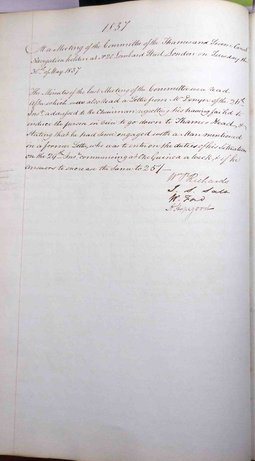 1837
At a Meeting of the Committee of the Thames and Severn Canal
Navigation holden at No 22 Lombard Street, London on Tuesday the
30th of May 1837
The Minutes of the last Meeting of the Committee were Read
after which was also Read a Letter from Mr Denyer of the 26th
Inst addressed to the Chairman, regretting his having failed to
induce the person in view to go down to Thames Head, &
Stating that he had since engaged with a Man mentioned
in a former Letter, who was to enter on the duties of his Situation
on the 29th Inst commencing at the Guinea a Week, & if he
answers to increase the Same to 25/-
W P Richards
J. S. Salt
W. Ford